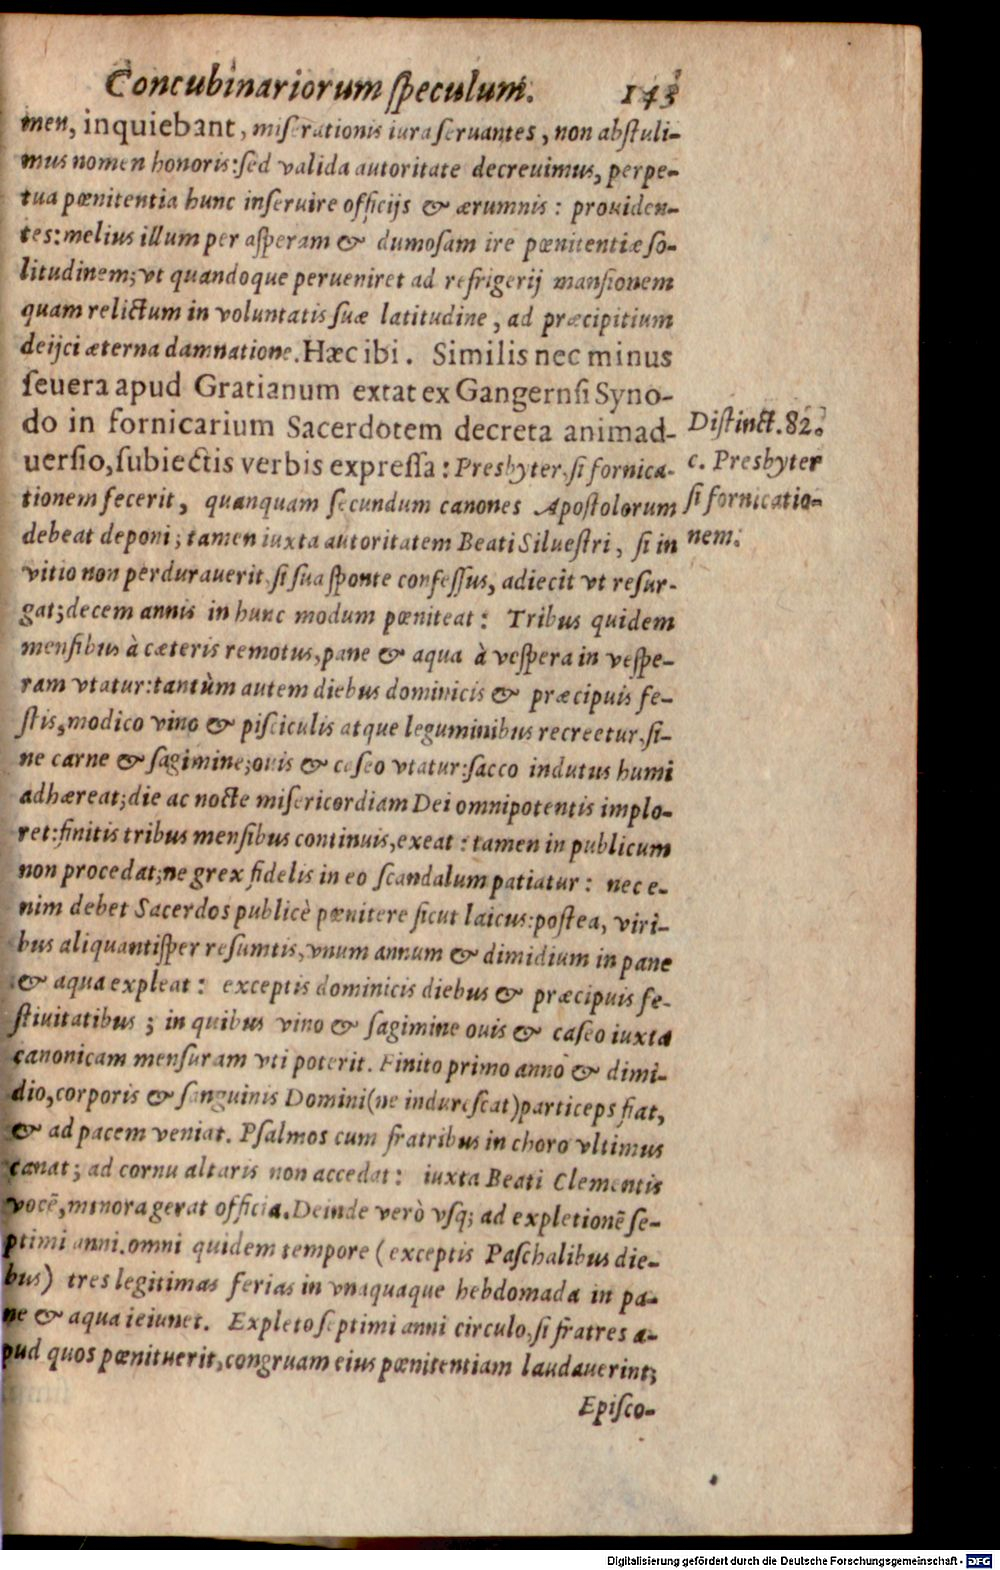 Concubinariorum ſpeculum. 143
men, inquiebant, miſerationis iura ſeruantes, non abſtuli-
mus nomen honoris: ſed valida autoritate decreuimus, perpe-
tua pœnitentia hunc inſeruire officijs & ærumnis: prouiden-
tes: melius illum per aſperam & dumoſam ire pœnitentiæ ſo-
litudinem; vt quandoque perueniret ad refrigerij manſionem
quam relictum in voluntatis ſuæ latitudine, ad præcipitium
deijci æterna damnatione. Hæc ibi. Similis nec minus
ſeuera apud Gratianum extat ex Gangernſi Syno-
do in fornicarium Sacerdotem decreta animad-
uerſio, ſubiectis verbis expreſſa: Presbyter, ſi fornica-
tionem fecerit, quanquam ſecundum canones Apoſtolorum
debeat deponi; tamen iuxta autoritatem Beati Silueſtri, ſi in
vitio non perdurauerit, ſi ſua ſponte confeſſus, adiecit vt reſur-
gat; decem annis in hunc modum pœniteat: Tribus quidem
menſibus à cæteris remotus, pane & aqua à veſpera in veſpe-
ram vtatur: tantùm autem diebus dominicis & præcipuis fe-
ſtis, modico vino & piſciculis atque leguminibus recreetur, ſi-
ne carne & ſagimine; ouis & caſeo vtatur: ſacco indutus humi
adhæreat; die ac nocte miſericordiam Dei omnipotentis implo-
ret: finitis tribus menſibus continuis, exeat: tamen in publicum
non procedat; ne grex fidelis in eo ſcandalum patiatur: nec e-
nim debet Sacerdos publicè pœnitere ſicut laicus: poſtea, viri-
bus aliquantiſper reſumtis, vnum annum & dimidium in pane
& aqua expleat: exceptis dominicis diebus & præcipuis fe-
ſtiuitatibus; in quibus vino & ſagimine ouis & caſeo iuxta
canonicam menſuram vti poterit. Finito primo anno & dimi-
dio, corporis & ſanguinis Domini (ne indureſcat) particeps fiat,
& ad pacem veniat. Pſalmos cum fratribus in choro vltimus
canat; ad cornu altaris non accedat: iuxta Beati Clementis
vocē, minora gerat officia. Deinde verò vſq; ad expletionē ſe-
ptimi anni, omni quidem tempore (exceptis Paſchalibus die-
bus) tres legitimas ferias in vnaquaque hebdomada in pa-
ne & aqua ieiunet. Expleto ſeptimi anni circulo, ſi fratres a-
pud quos pœnituerit, congruam eius pœnitentiam laudauerint;
Epiſco-
Diſtinct. 82.
c. Presbyter
ſi fornicatio-
nem.
Digitalisierung gefördert durch die Deutsche Forschungsgemeinschaft - DFG